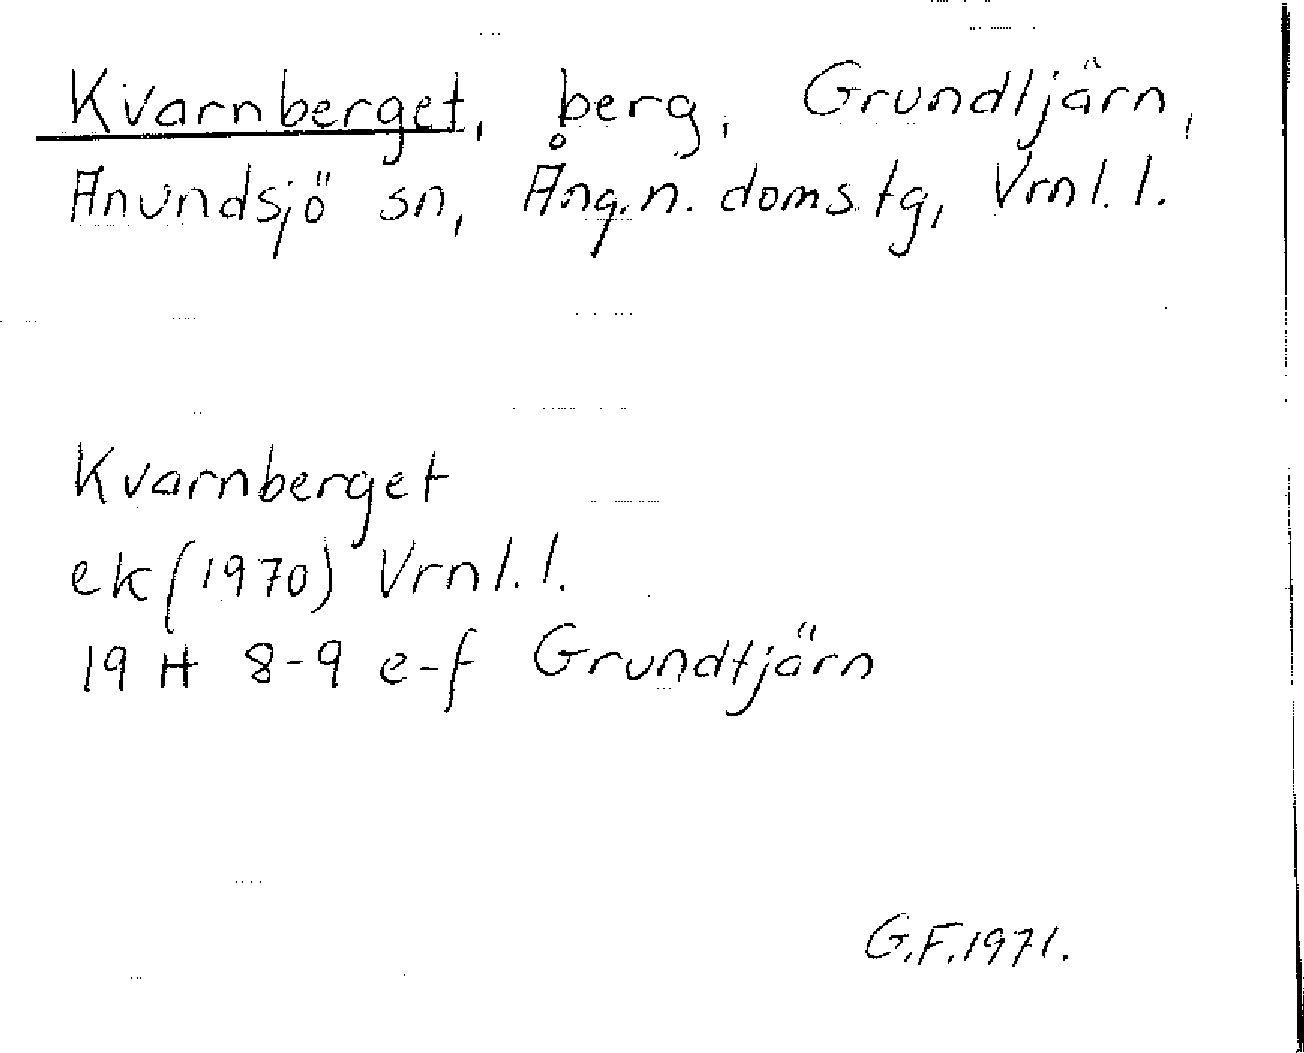 Kvarnberget, berg, Grundtjärn,
Anundsjö sn, Ång.n. doms.tg, Vrnl.l.
Kvarnberget
ek (1970) Vrnl.l.
19 H 8-9 e-f Grundtjärn
G.F.1971.